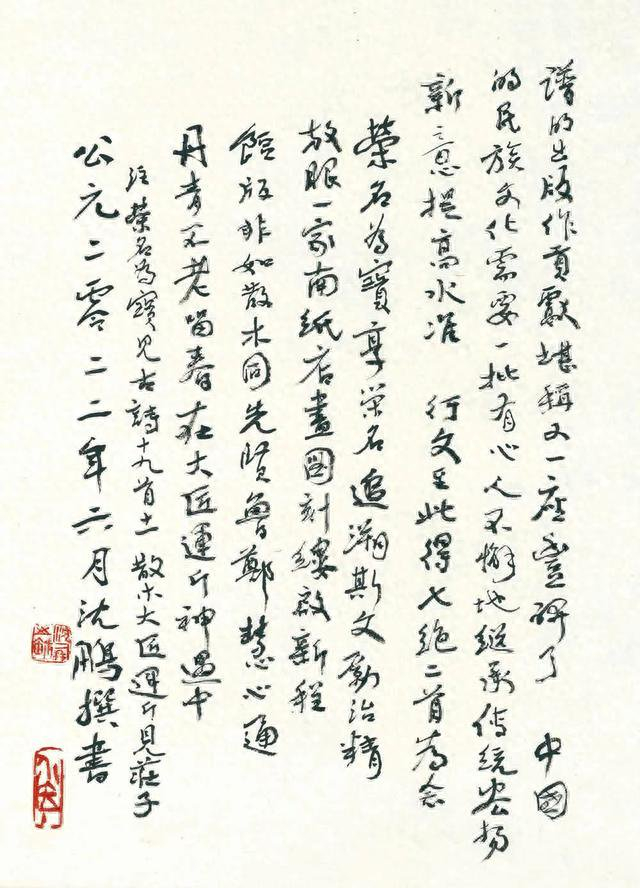 譜的出版作貢獻堪稱又一座豐碑了 中國
的民族文化需要一批有心人不懈地繼承傳統揚
新意提高水准 行文至此得七绝二首為念
榮名為寶享榮名追溯斯文勵治精
放眼一家南紙店畫圖刻縷啟新程
餖版非如散木同先賢魯鄭慧心通
丹青不老留春在大匠運斤神遇中
注 榮名為寶見古詩十九首十一 散木大匠運斤見莊子
公元二零二二年六月沈鵬撰書